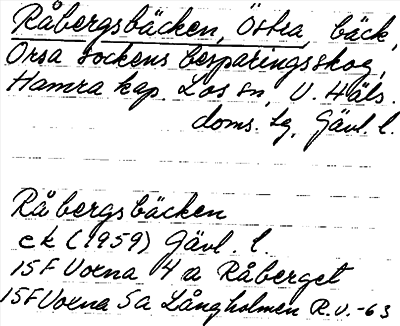 Råbergsbäcken, Östra, bäck,
Orsa sockens besparingsskog,
Hamra kap. Los sn, V. Häls.
doms. lg, Gävl. l.
Råbergsbäcken
ek (1959) Gävl. l.
15F Voxna 4 a Råberget
15F Voxna 5a Långholmen R.V.-63